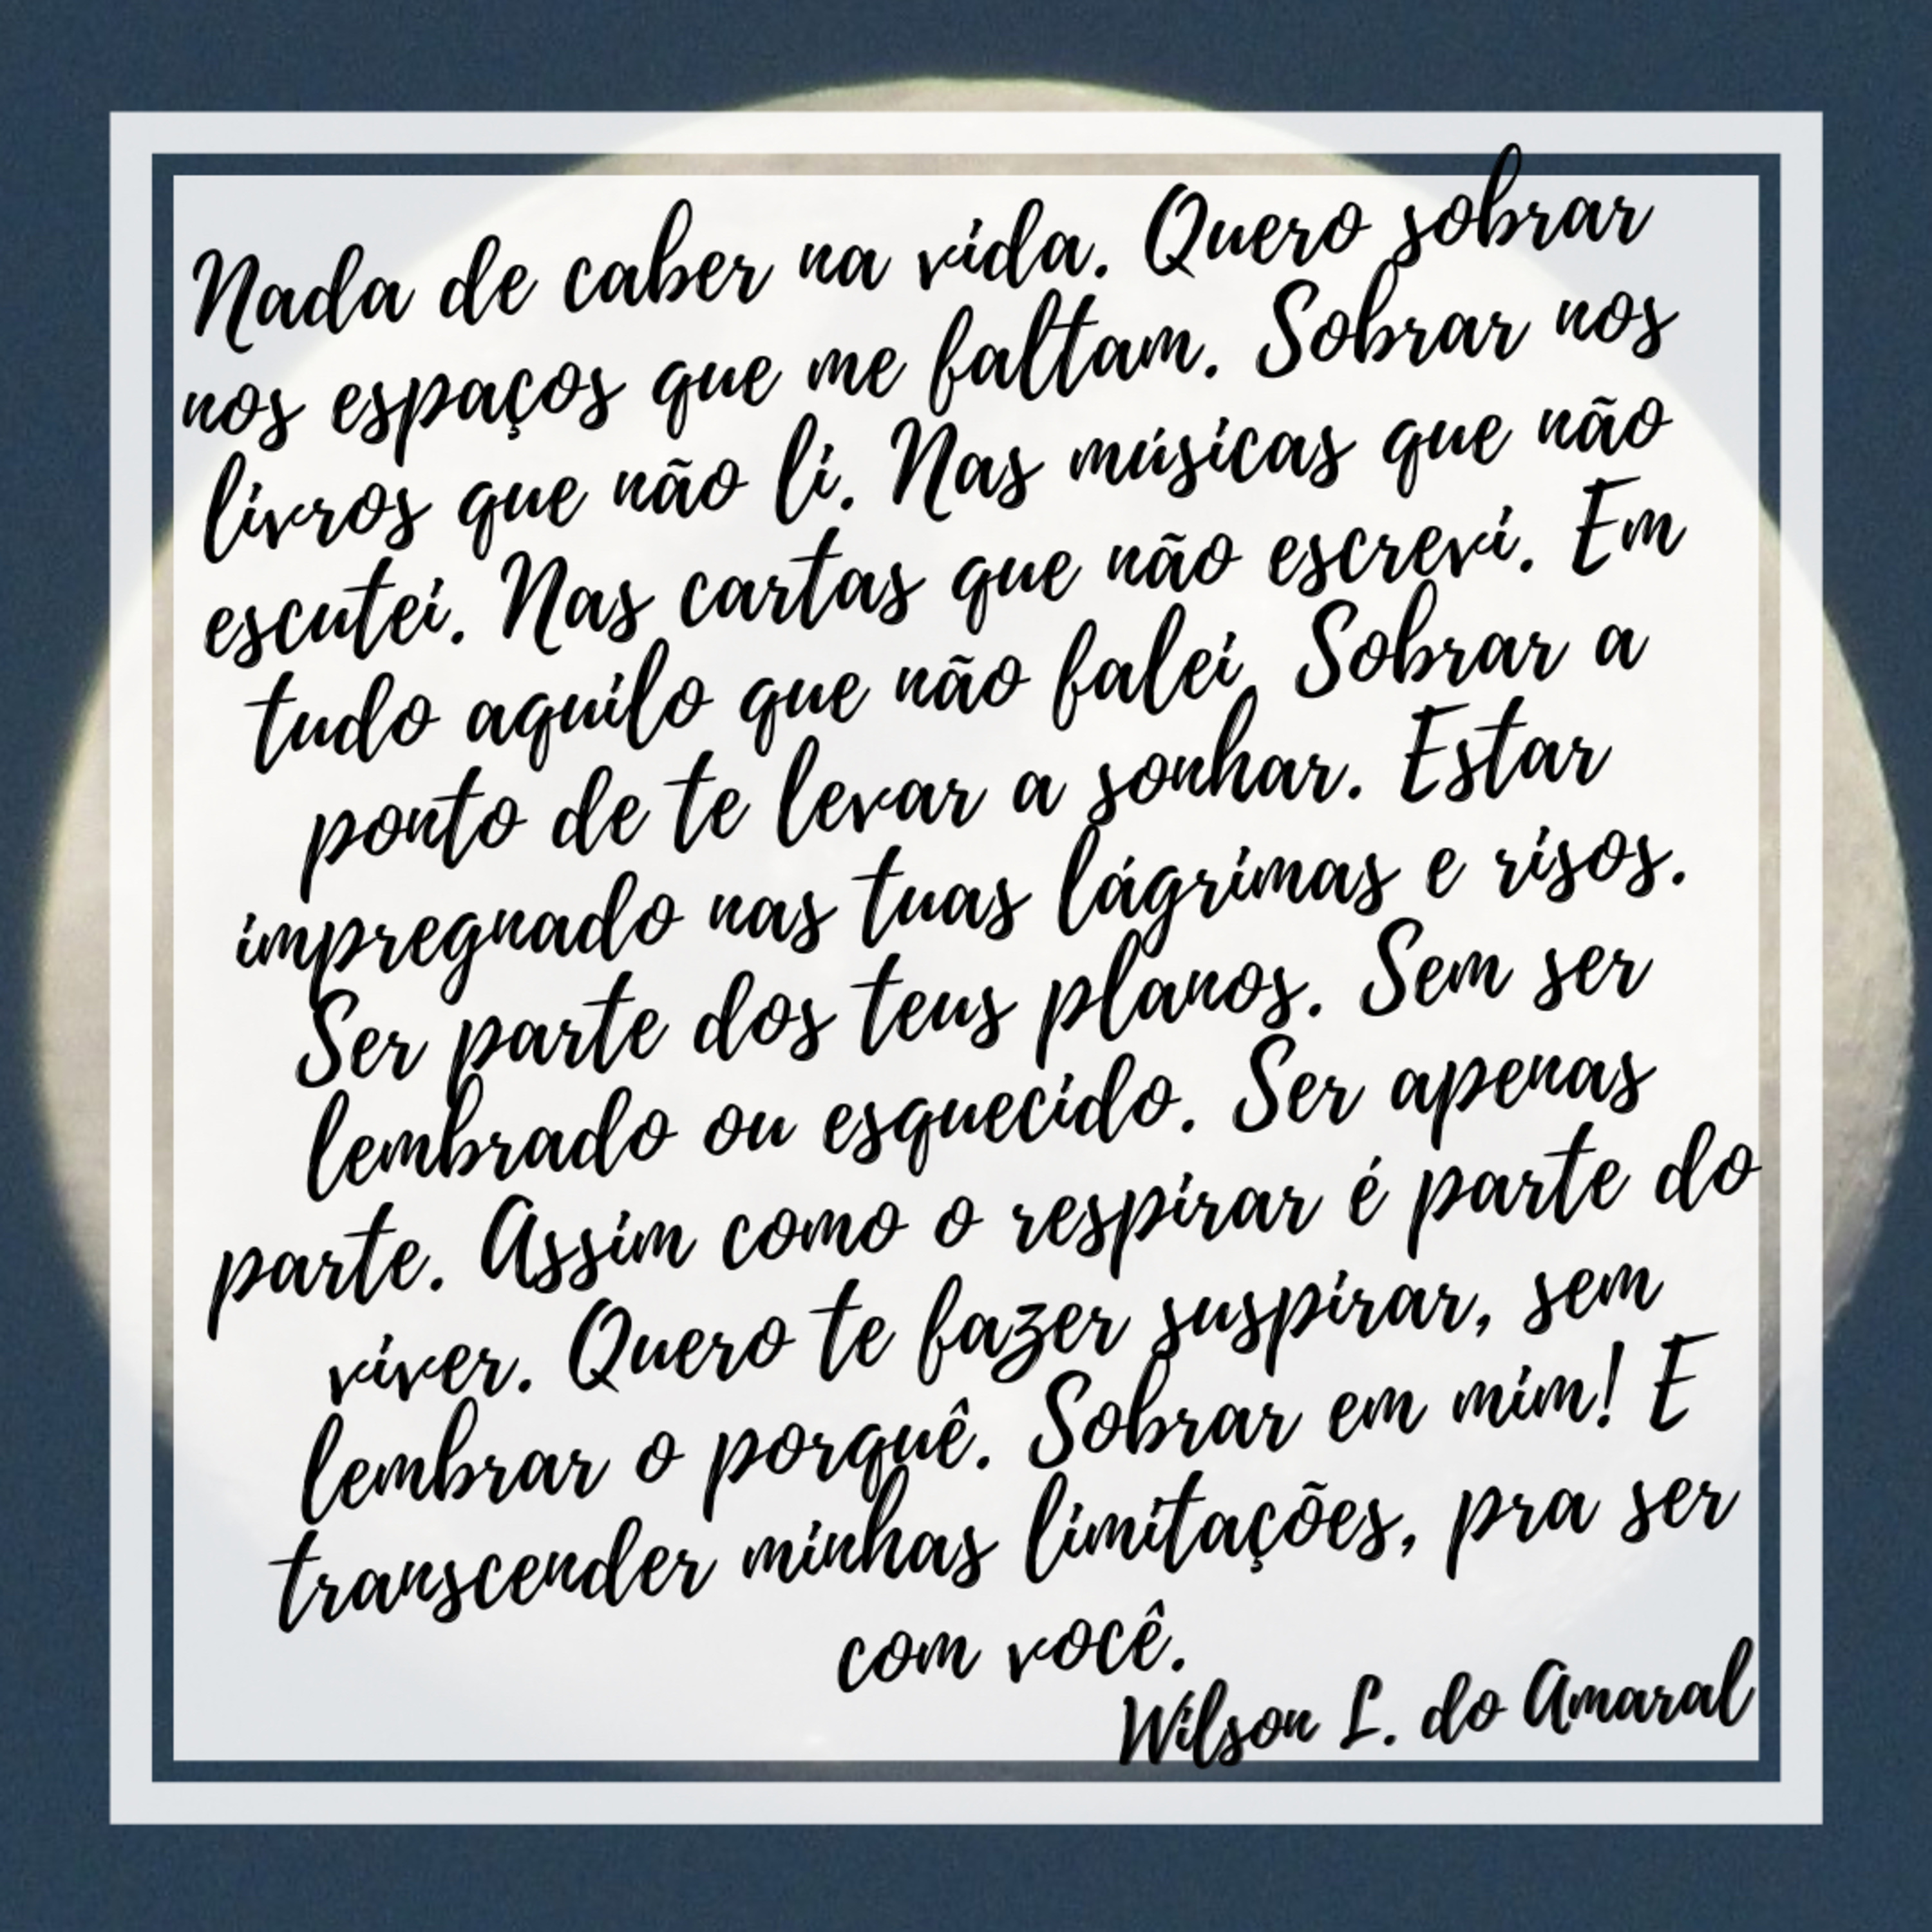 Nada de caber na vida. Quero sobrar
nos espaços que me faltam. Sobrar nos
livros que não li. Nas músicas que não
escutei. Nas cartas que não escrevi. Em
tudo aquilo que não falei. Sobrar a
ponto de te levar a sonhar. Estar
impregnado nas tuas lágrimas e risos.
Ser parte dos teus planos. Sem ser
lembrado ou esquecido. Ser apenas
parte. Assim como o respirar é parte do
viver. Quero te fazer suspirar, sem
lembrar o porquê. Sobrar em mim! E
transcender minhas limitações, pra ser
com você.
Wilson L. do Amaral